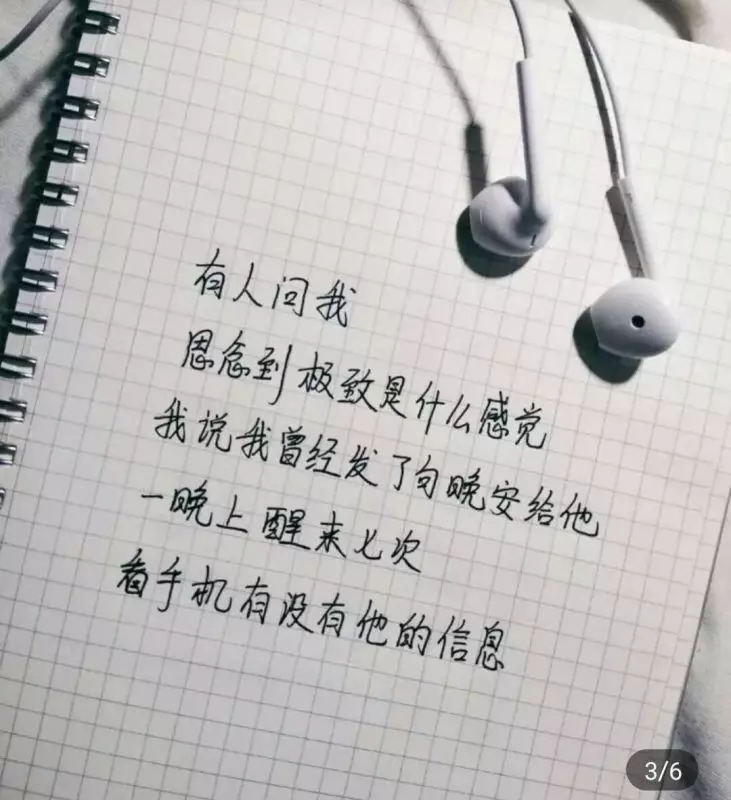 有人问我
思念到极致是什么感觉
我说我曾经发了句晚安给他
一晚上醒来七次
看手机有没有他的信息
3/6